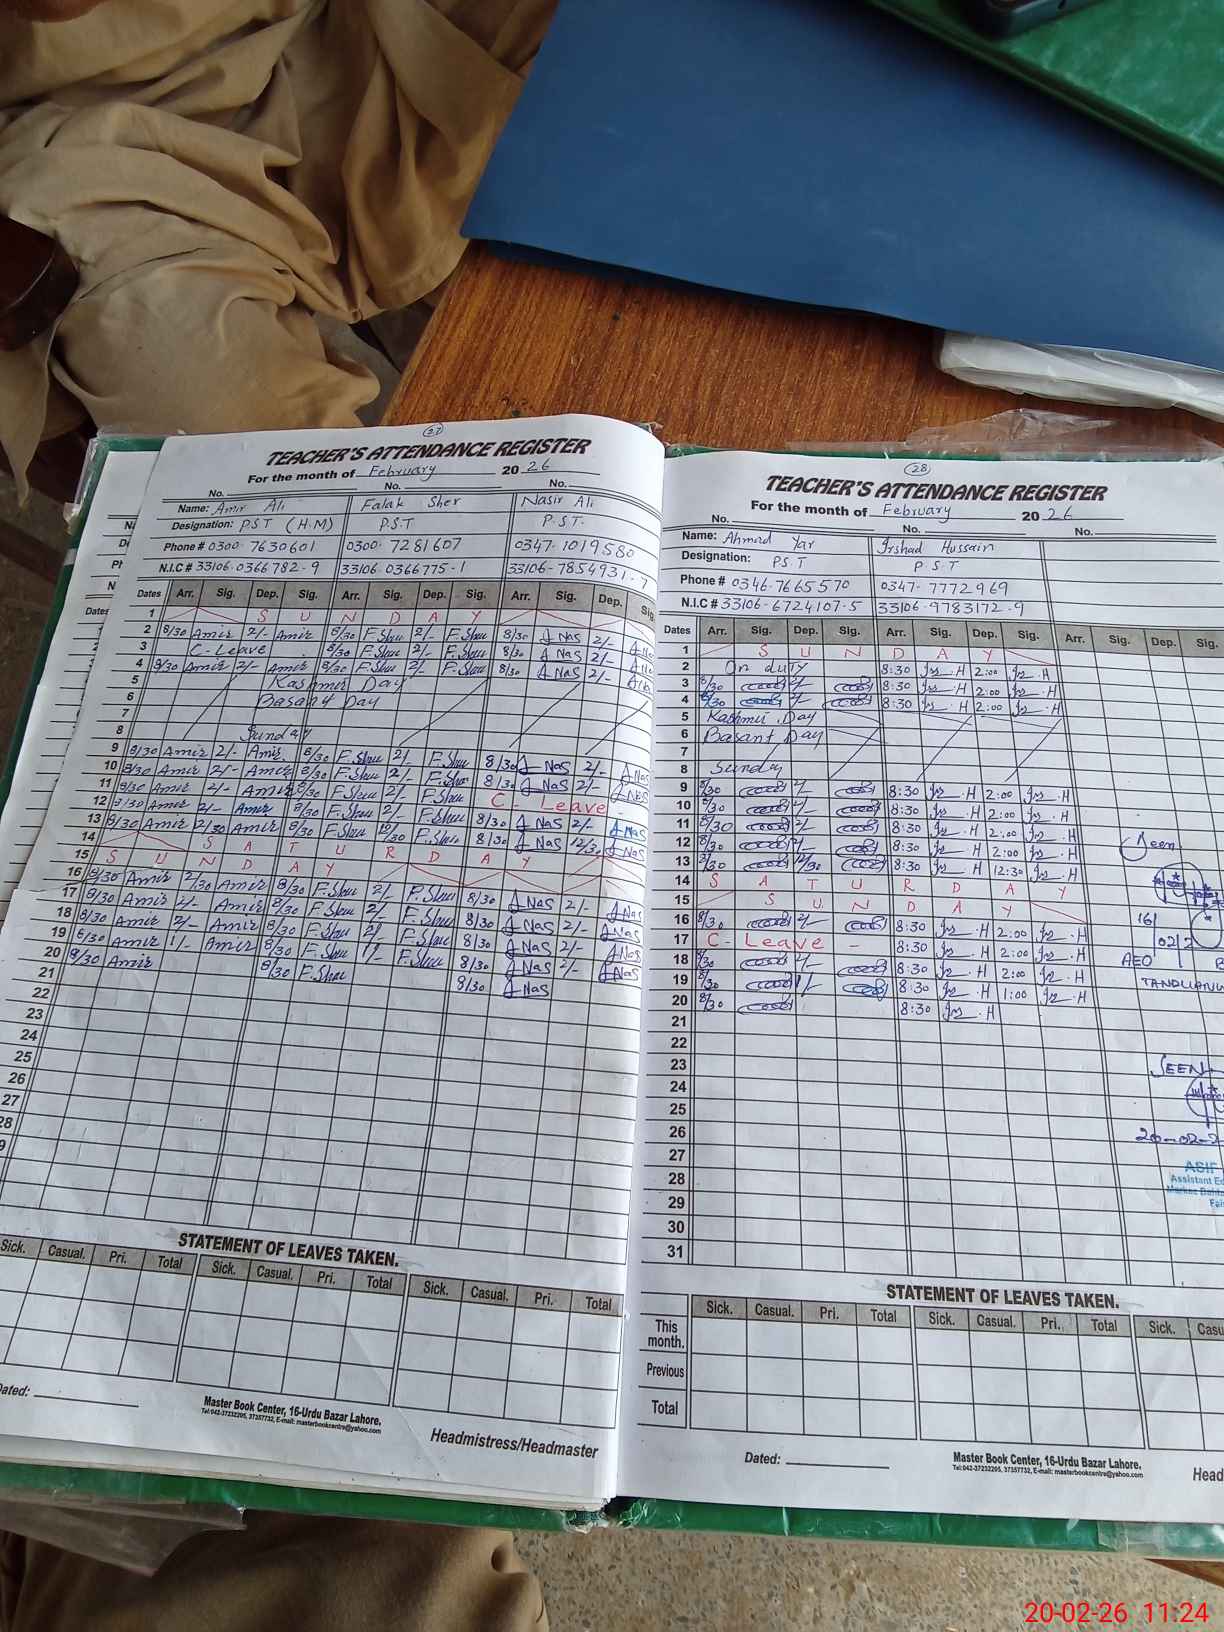 27
TEACHER'S ATTENDANCE REGISTER
For the month of February 2026
No. No. No.
Name: Amir Ali Falak Sher Nasir Ali
Designation: P.S.T (H.M) P.S.T P.S.T.
Phone # 0300-7630601 0300-7281607 0347-1019580
N.I.C # 33106-0366782-9 33106-0366775-1 33106-7854931-7
Dates Arr. Sig. Dep. Sig. Arr. Sig. Dep. Sig. Arr. Sig. Dep. Sig.
1 S U N D A Y
2 8/30 Amir 2/- Amir 8/30 F.Sher 2/- F.Sher 8/30 NaS 2/-
3 C-Leave 8/30 F.Sher 2/- F.Sher 8/30 NaS 2/-
4 8/30 Amir 2/- Amir 8/30 F.Sher 2/- F.Sher 8/30 NaS 2/-
5 Kashmir Day
6 Basant Day
7
8 Sunday
9 8/30 Amir 2/- Amir 8/30 F.Sher 2/- F.Sher 8/30 NaS 2/- NaS
10 8/30 Amir 2/- Amir 8/30 F.Sher 2/- F.Sher 8/30 NaS 2/- NaS
11 8/30 Amir 2/- Amir 8/30 F.Sher 2/- F.Sher C-Leave -
12 8/30 Amir 2/- Amir 8/30 F.Sher 2/- F.Sher 8/30 NaS 2/- NaS
13 8/30 Amir 2/30 Amir 8/30 F.Sher 12/30 F.Sher 8/30 NaS 12/30 NaS
14 S A T U R D A Y
15 S U N D A Y
16 8/30 Amir 2/30 Amir 8/30 F.Sher 2/- F.Sher 8/30 NaS 2/- NaS
17 8/30 Amir 2/- Amir 8/30 F.Sher 2/- F.Sher 8/30 NaS 2/- NaS
18 8/30 Amir 2/- Amir 8/30 F.Sher 2/- F.Sher 8/30 NaS 2/- NaS
19 8/30 Amir 1/- Amir 8/30 F.Sher 1/- F.Sher 8/30 NaS 2/- NaS
20 8/30 Amir 8/30 F.Sher 8/30 NaS
21
22
23
24
25
26
27
28
STATEMENT OF LEAVES TAKEN.
Sick. Casual. Pri. Total Sick. Casual. Pri. Total Sick. Casual. Pri. Total
Dated:
Master Book Center, 16-Urdu Bazar Lahore.
Tel:042-37232205, 37357732, E-mail: masterbookcentre@yahoo.com
Headmistress/Headmaster
28
TEACHER'S ATTENDANCE REGISTER
For the month of February 2026
No. No.
Name: Ahmad Yar Irshad Hussain
Designation: P.S.T P.S.T
Phone # 0346-7665570 0347-7772969
N.I.C # 33106-6724107-5 33106-9783172-9
Dates Arr. Sig. Dep. Sig. Arr. Sig. Dep. Sig. Arr. Sig. Dep. Sig.
1 S U N D A Y
2 On duty 8:30 Irs.H 2:00 Irs.H
3 8/30 2/- 8:30 Irs.H 2:00 Irs.H
4 8/30 2/- 8:30 Irs.H 2:00 Irs.H
5 Kashmir Day
6 Basant Day
7
8 Sunday
9 8/30 2/- 8:30 Irs.H 2:00 Irs.H
10 8/30 2/- 8:30 Irs.H 2:00 Irs.H
11 8/30 2/- 8:30 Irs.H 2:00 Irs.H
12 8/30 2/- 8:30 Irs.H 2:00 Irs.H
13 8/30 12/30 8:30 Irs.H 12:30 Irs.H
14 S A T U R D A Y
15 S U N D A Y
16 8/30 2/- 8:30 Irs.H 2:00 Irs.H
17 C-Leave - 8:30 Irs.H 2:00 Irs.H
18 8/30 2/- 8:30 Irs.H 2:00 Irs.H
19 8/30 1/- 8:30 Irs.H 1:00 Irs.H
20 8/30 8:30 Irs.H
21
22
23
24
25
26
27
28
29
30
31
Seen
16/
02/2
AEO
SEEN
20-02-2
ASIF
STATEMENT OF LEAVES TAKEN.
Sick. Casual. Pri. Total Sick. Casual. Pri. Total Sick.
This month.
Previous
Total
Dated:
Master Book Center, 16-Urdu Bazar Lahore.
Tel:042-37232205, 37357732, E-mail: masterbookcentre@yahoo.com
20-02-26 11:24